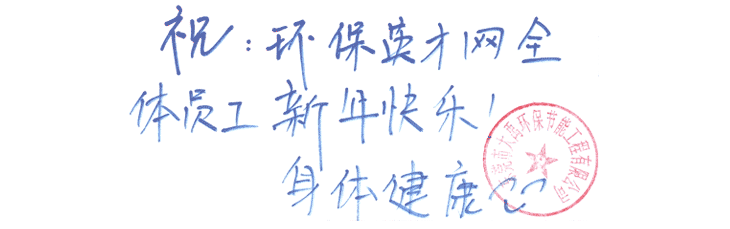 祝：环保英才网全
体员工新年快乐！
身体健康
东莞市大禹环保节能工程有限公司